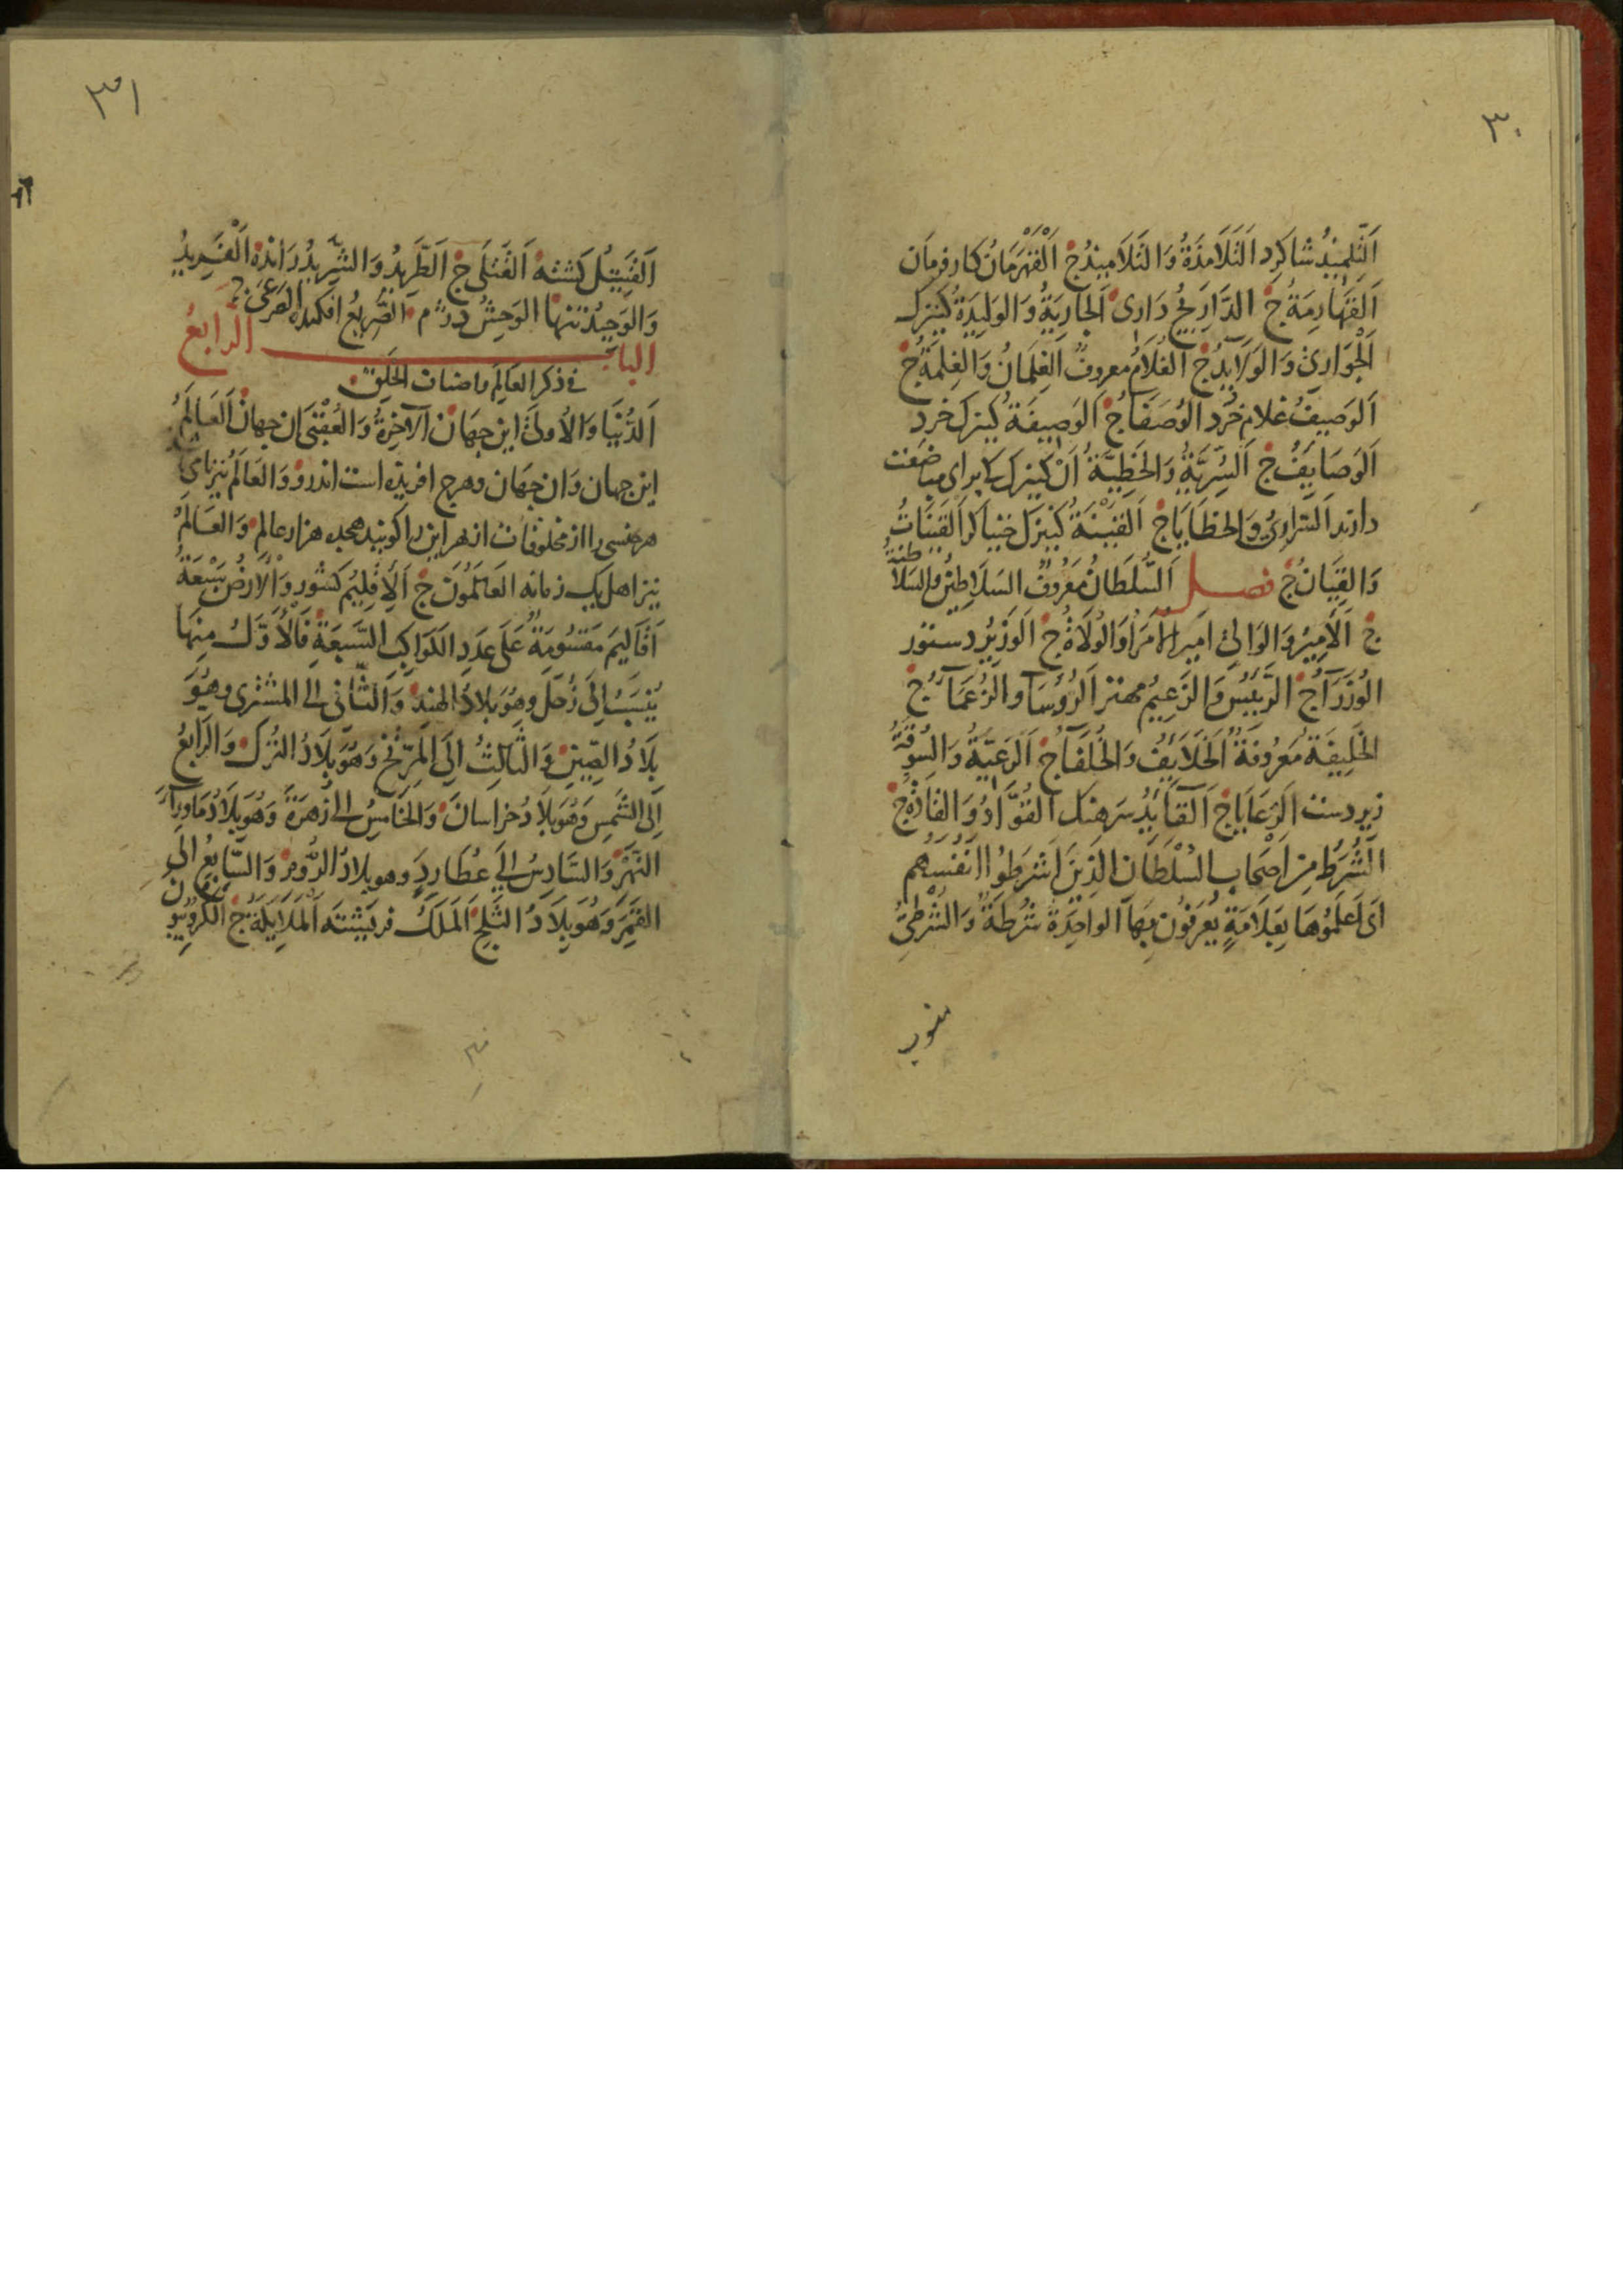 ٣٠
اَلتِّلْمِيذُ شاكرد اَلتَّلَامِذَةُ وَالتَّلَامِيذُ ج اَلْقَهْرَمَانُ كارفرمان
اَلقَهَارِمَةُ ج الدَّارَجُ دَارى اَلجَارِيَةُ وَالوَلِيدَةُ كنيزك
اَلْجَوَارِيْ وَالوَلَايِدُ ج اَلغُلَامُ معروفٌ اَلغِلْمَانُ وَالغِلْمَةُ ج
اَلوَصِيفُ غلام خُرد الوُصَفَا ج اَلوَصِيفَةُ كنيزك خرد
اَلوَصَايِفُ ج اَلسُّرِّيَّةُ وَالحَظِيَّةُ اَنْ كنيزك كه براى مباضعت
دارند اَلسَّرَارِيُّ وَالحَظَايَا ج اَلقَيْنَةُ كنيزك خنياكر اَلقَيْنَاتُ
وَالقِيَانُ ج فصل اَلسُّلْطَانُ مَعْرُوفٌ السَلَاطِيْنُ والسَلَاطنةُ
ج اَلْاَمِيْرُ وَالوَالِيْ امير الْاُمَرَا وَالوُلَاةُ ج اَلوَزِيْرُ دستور
الوُزَرَآ ج الرَّئِيْسُ وَالزَّعِيْمُ مهتر اَلرُّؤَسَا والزُّعَمَآ ج
الخَلِيفَةُ مَعْرُوفَةٌ اَلخَلَايِفُ وَالخُلَفَا ج اَلرَّعِيَّةُ وَالسُّوقَةُ
زيردست اَلرَّعَايَا ج اَلقَآيِدُ سَرهنك اَلقُوَّادُ وَالقَادَةُ ج
اَلشُّرَطُ مِنْ اَصْحَابِ السُلْطَانِ الَّذِيْنَ اَشْرَطُوْا اَنْفُسَهُم
اَى اَعْلَمُوْهَا بِعَلَامَةٍ يُعْرَفُوْنَ بِهَا اَلواحِدَةُ شُرْطَةٌ وَالشُّرْطِيُّ
٣١
اَلقَتِيْلُ كشته اَلقَتْلَى ج اَلطَّرِيدُ وَالشَّرِيدُ رَانده اَلْفَرِيدُ
وَالوَحِيْدُ تنها الوَحِشُ دژم اَلصَّرِيعُ افكنده الصَرْعَى ج
البابُ الرَّابعُ
فى ذكر العالم واصناف الخلق
اَلدُّنْيَا وَالْاُولَى اين جهان اَلآخِرَةُ وَالعُقْبَى ان جهان اَلعَالَمُ
اين جهان وَان جهان وهرج افريده است اندرو وَالعَالَمُ نيز باشد
هر جنسى را از مخلوقات از بهر اين را كويند هجده هزار عالم وَالعَالَمُ
نيز اهل يك زمانه العَالَمُوْنَ ج اَلْاِقْلِيْمُ كشور وَالْاَرْضُ سَبْعَةُ
اَقَالِيْمَ مَقْسُوْمَةٌ عَلَى عَدَدِ الكَوَاكِبِ السَّبعَةِ فَالْاَوَّلُ مِنْهَا
يُنْسَبُ اِلَى زُحَلَ وهُوَ بِلَادُ الهِنْدِ وَالثَّانى الى المشترى وهُوَ
بِلَادُ الصِّيْنِ وَالثَّالِثُ اِلَى المِرِّيْخِ وَهُوَ بِلَادُ التُّرْكِ وَالرَّابعُ
اِلَى الشَّمْسِ وَهُوَ بِلَادُ خراسانَ وَالخَامِسُ الى الزُهَرَةِ وَهُوَ بِلَادُ مَاوراءَ
النَّهْرِ وَالسَّادِسُ اِلَى عُطَارِدَ وهو بلادُ الرُّوْمِ وَالسَّابِعُ اِلَى
القَمَرِ وَهُوَ بِلَادُ الثَّلْجِ اَلمَلَكُ فريشته اَلمَلَايِكَةُ ج اَلكَرُّوْبِيُّوْنَ